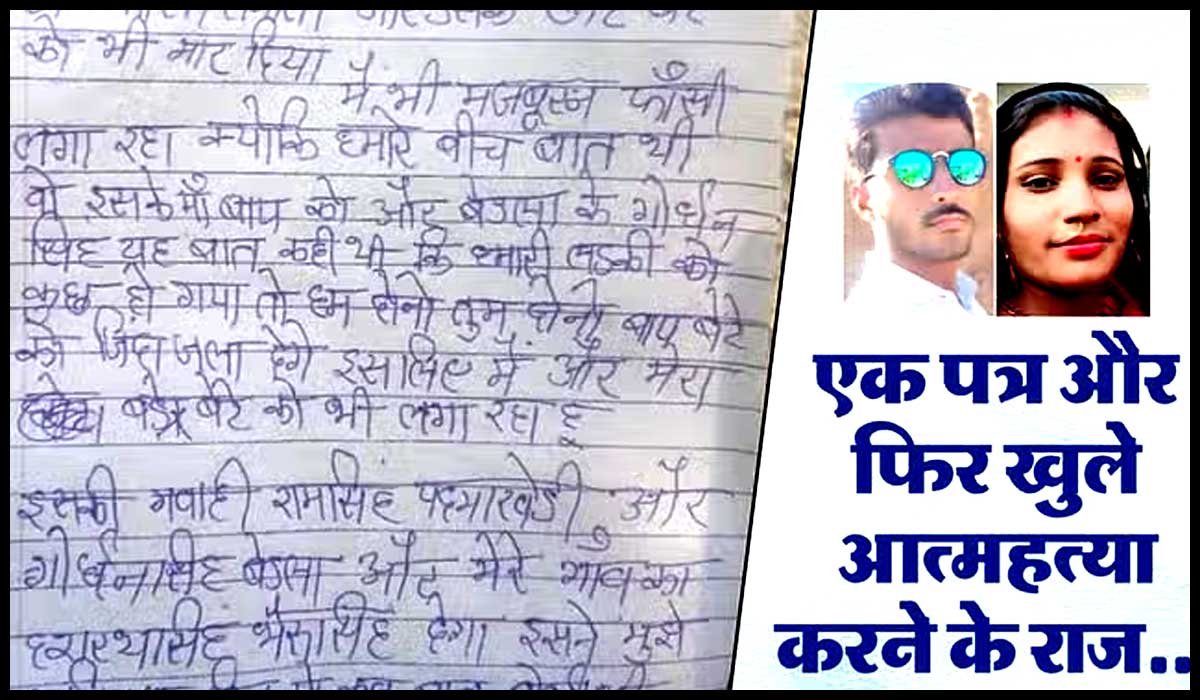 को भी मार दिया
मैं भी मजबूरन फाँसी
लगा रहा क्योकि हमारे बीच बात थी
वो इसके माँ बाप को और बेडला के गोर्धन
सिंह यह बात कही थी कि हमारी लडकी को
कुछ हो गया तो हम दोनो तुम दोनो बाप बेटे
को जिंदा जला देगे इसलिए मैं और मेरा
बडे बेटे को भी लगा रहा हू
इसकी गवाही रामसिंह और
गोर्धनसिंह और मेरे गाँव का
भैरूसिंह देगा इसने मुझे
एक पत्र और
फिर खुले
आत्महत्या
करने के राज..